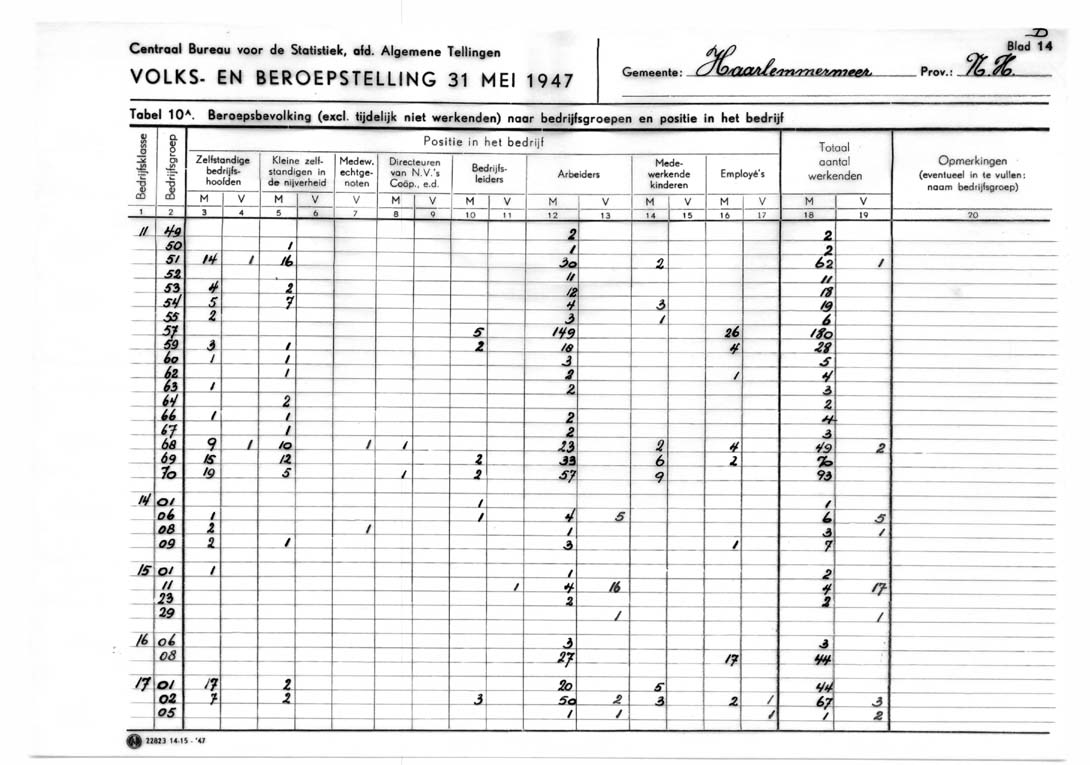 D
Centraal Bureau voor de Statistiek, afd. Algemene Tellingen
Blad 14
VOLKS- EN BEROEPSTELLING 31 MEI 1947
Gemeente: Haarlemmermeer Prov.: N.H.
Tabel 10A. Beroepsbevolking (excl. tijdelijk niet werkenden) naar bedrijfsgroepen en positie in het bedrijf
Bedrijfsklasse
Bedrijfsgroep
Positie in het bedrijf
Zelfstandige bedrijfs- hoofden
Kleine zelf- standigen in de nijverheid
Medew. echtge- noten
Directeuren van N.V.'s Coöp., e.d.
Bedrijfs- leiders
Arbeiders
Mede- werkende kinderen
Employé's
Totaal aantal werkenden
Opmerkingen (eventueel in te vullen: naam bedrijfsgroep)
M V M V V M V M V M V M V M V M V
1 2 3 4 5 6 7 8 9 10 11 12 13 14 15 16 17 18 19 20
11 49 2 2
50 1 1 2
51 14 1 16 30 2 62 1
52 11 11
53 4 2 12 18
54 5 7 4 3 19
55 2 3 1 6
57 5 149 26 180
59 3 1 2 18 4 28
60 1 1 3 5
62 1 2 1 4
63 1 2 3
64 2 2
66 1 1 2 4
67 1 2 3
68 9 1 10 1 1 23 2 4 49 2
69 15 12 2 33 6 2 70
70 19 5 1 2 57 9 93
14 01 1 1
06 1 1 4 5 6 5
08 2 1 1 3 1
09 2 1 3 1 7
15 01 1 1 2
11 1 4 16 4 17
23 2 2
29 1 1
16 06 3 3
08 27 17 44
17 01 17 2 20 5 44
02 7 2 3 50 2 3 2 1 67 3
05 1 1 1 1 2
22823 14-15 - '47